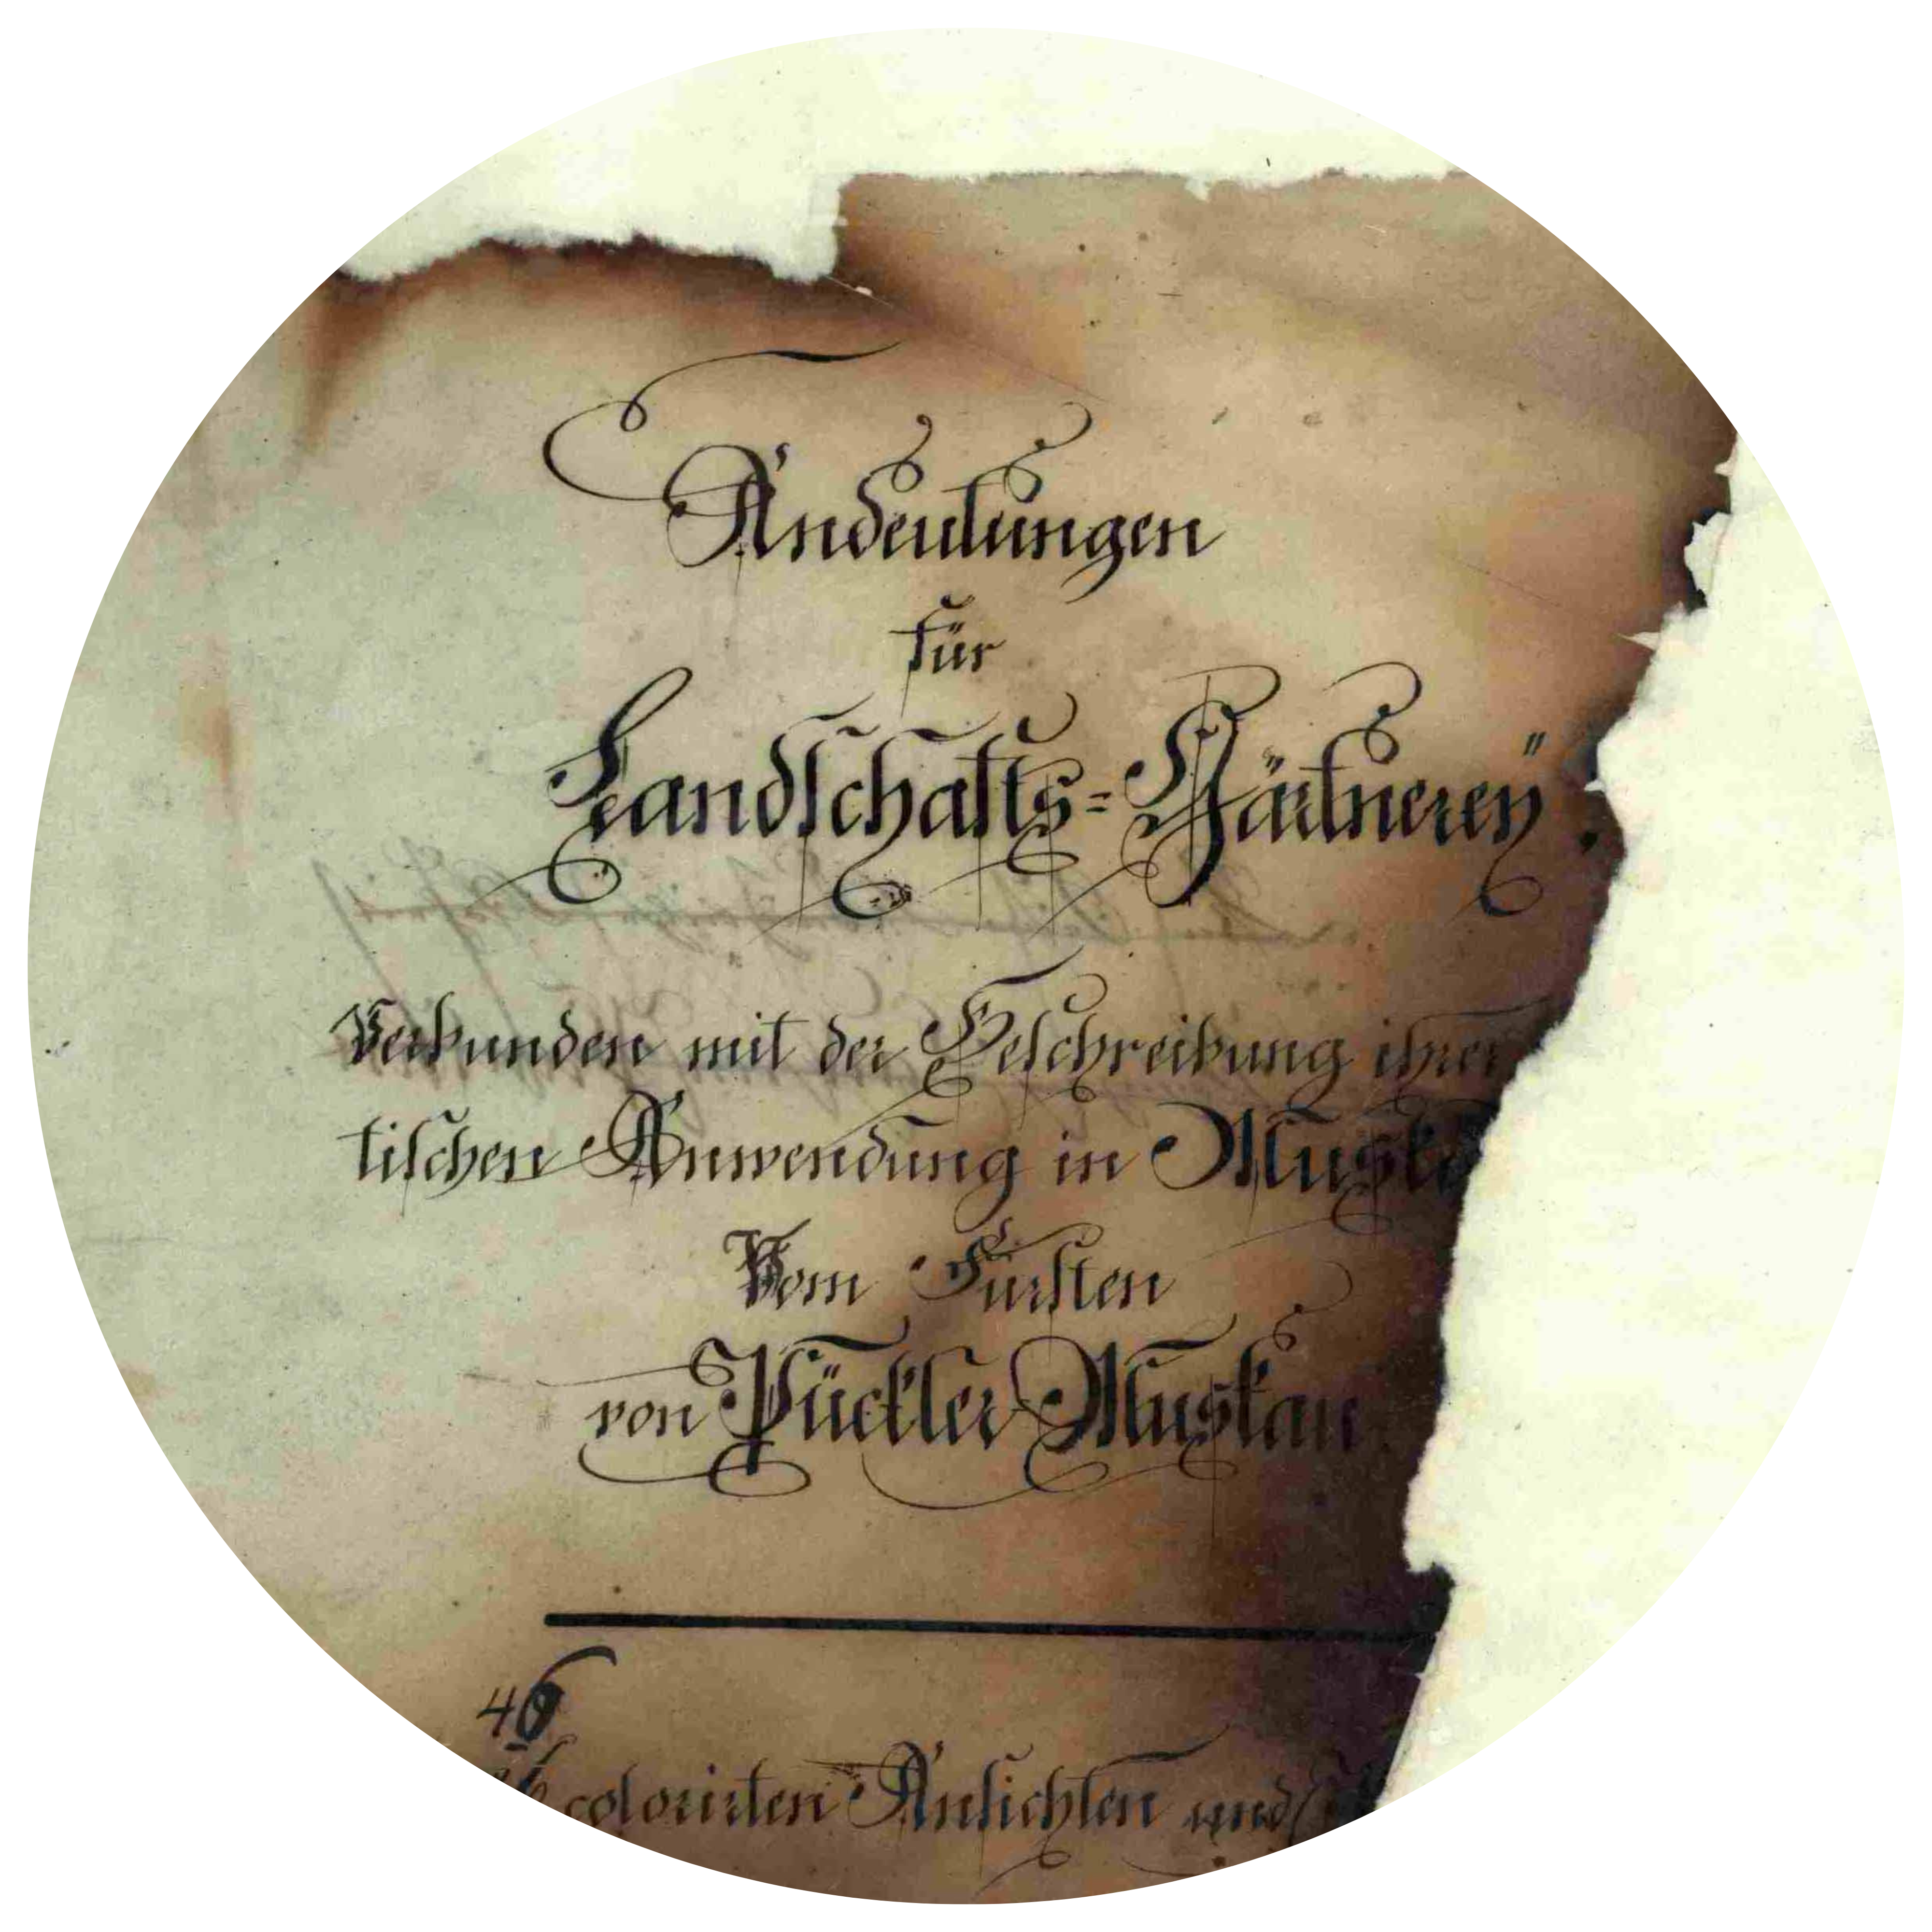 Andeutungen
für
Landschafts=Gärtnerey.
Verbunden mit der Beschreibung ihrer
tischen Anwendung in Muska
Vom Fürsten
von Pückler Muskau
46
colorirten Ansichten und